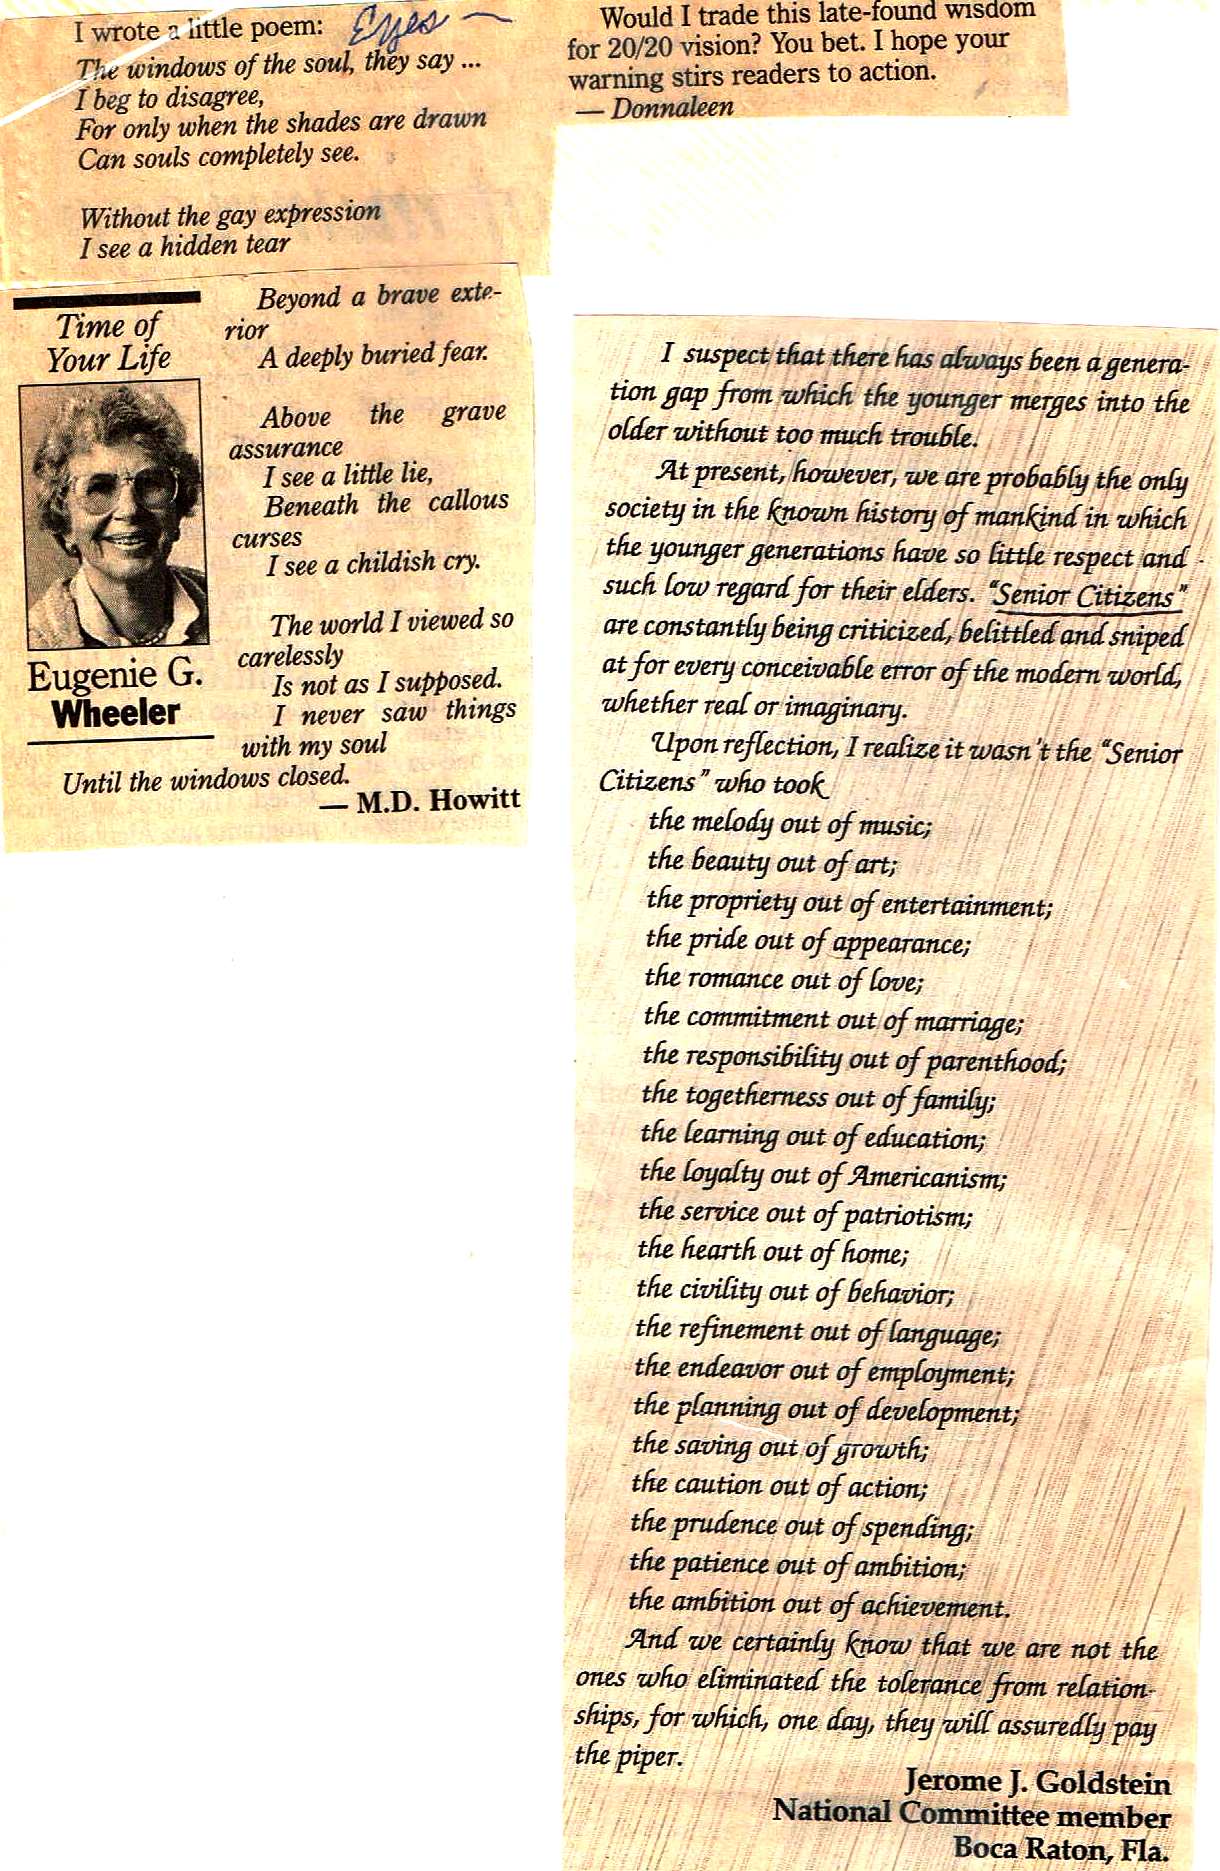 I wrote a little poem: Eyes —
The windows of the soul, they say ...
I beg to disagree,
For only when the shades are drawn
Can souls completely see.
Without the gay expression
I see a hidden tear
Time of
Your Life
Eugenie G.
Wheeler
Beyond a brave exte-
rior
A deeply buried fear.
Above the grave
assurance
I see a little lie,
Beneath the callous
curses
I see a childish cry.
The world I viewed so
carelessly
Is not as I supposed.
I never saw things
with my soul
Until the windows closed.
— M.D. Howitt
Would I trade this late-found wisdom
for 20/20 vision? You bet. I hope your
warning stirs readers to action.
— Donnaleen
I suspect that there has always been a genera-
tion gap from which the younger merges into the
older without too much trouble.
At present, however, we are probably the only
society in the known history of mankind in which
the younger generations have so little respect and
such low regard for their elders. "Senior Citizens"
are constantly being criticized, belittled and sniped
at for every conceivable error of the modern world,
whether real or imaginary.
Upon reflection, I realize it wasn't the "Senior
Citizens" who took
the melody out of music;
the beauty out of art;
the propriety out of entertainment;
the pride out of appearance;
the romance out of love;
the commitment out of marriage;
the responsibility out of parenthood;
the togetherness out of family;
the learning out of education;
the loyalty out of Americanism;
the service out of patriotism;
the hearth out of home;
the civility out of behavior;
the refinement out of language;
the endeavor out of employment;
the planning out of development;
the saving out of growth;
the caution out of action;
the prudence out of spending;
the patience out of ambition;
the ambition out of achievement.
And we certainly know that we are not the
ones who eliminated the tolerance from relation-
ships, for which, one day, they will assuredly pay
the piper.
Jerome J. Goldstein
National Committee member
Boca Raton, Fla.